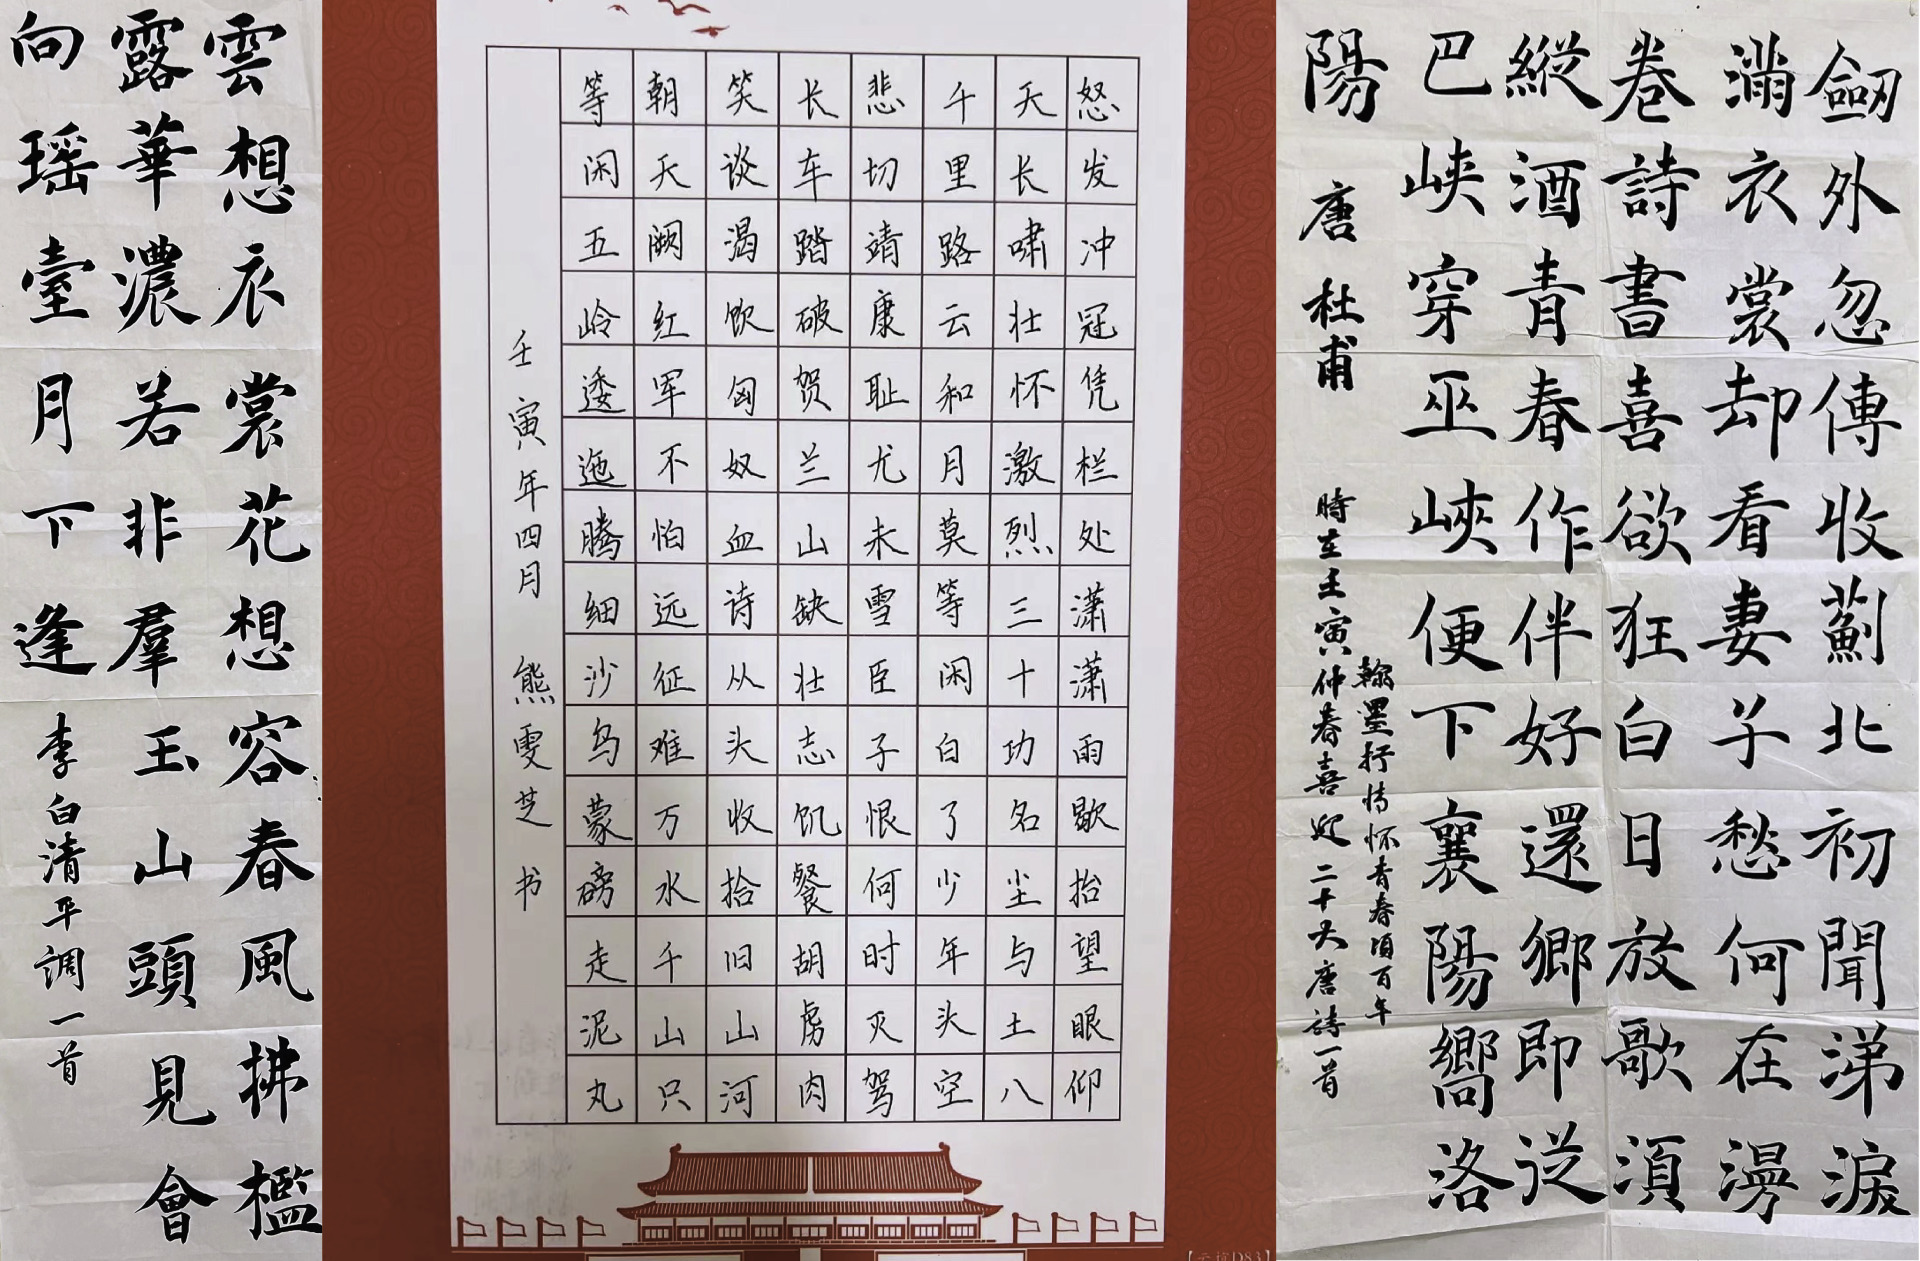 雲想衣裳花想容春風拂檻
露華濃若非羣玉山頭見會
向瑶臺月下逢 李白清平調一首
怒发冲冠凭栏处潇潇雨歇抬望眼仰
天长啸壮怀激烈三十功名尘与土八
千里路云和月莫等闲白了少年头空
悲切靖康耻尤未雪臣子恨何时灭驾
长车踏破贺兰山缺壮志饥餐胡虏肉
笑谈渴饮匈奴血诗从头收拾旧山河
朝天阙红军不怕远征难万水千山只
等闲五岭逶迤腾细沙乌蒙磅走泥丸
壬寅年四月 熊雯芝 书
劔外忽傳收薊北初聞涕淚
滿衣裳却看妻子愁何在漫
卷詩書喜欲狂白日放歌須
縱酒青春作伴好還鄉即從
巴峽穿巫峽便下襄陽嚮洛
陽 唐 杜甫
翰墨抒情怀青春頌百年
時在壬寅仲春喜迎二十大唐詩一首